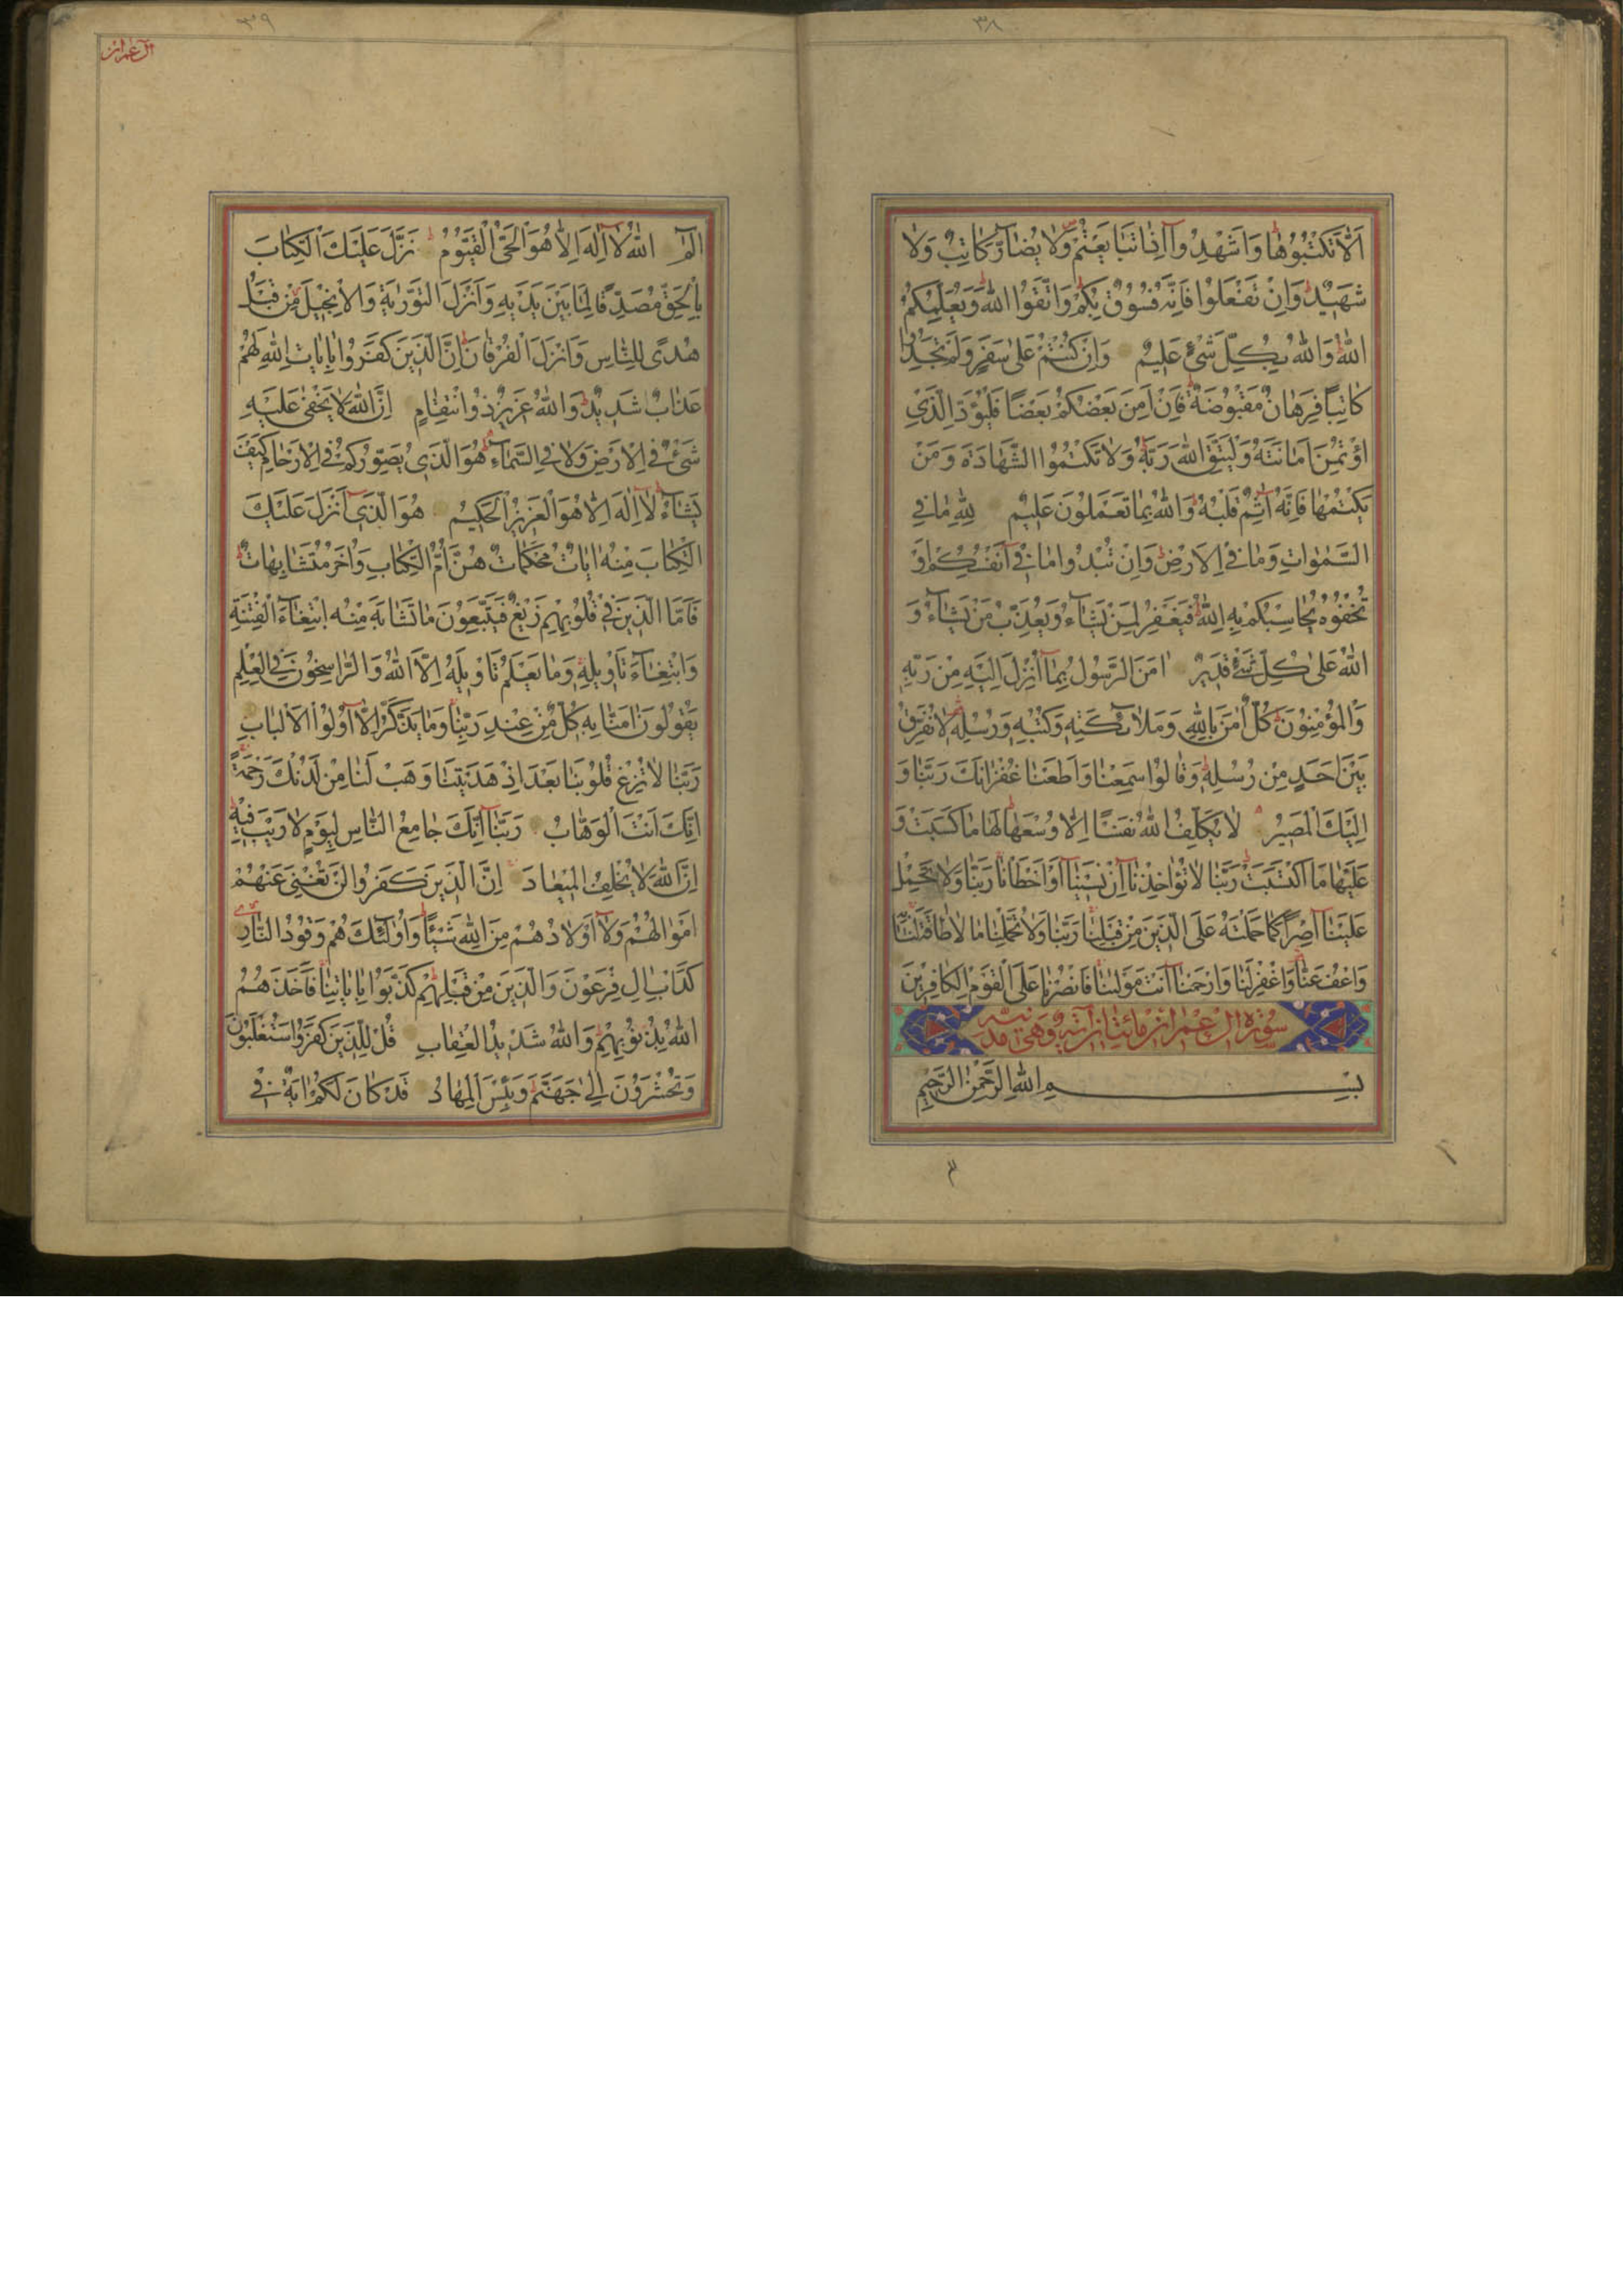 ٣٨
اَلّٰا تَكْتُبُوهٰا وَاَشْهِدُوا اِذٰا تَبٰايَعْتُمْ وَلا يُضٰارَّ كٰاتِبٌ وَلا
شَهيدٌ وَاِنْ تَفْعَلُوا فَاِنَّهُ فُسُوقٌ بِكُمْ وَاتَّقُوا اللّٰهَ وَيُعَلِّمُكُمُ
اللّٰهُ وَاللّٰهُ بِكُلِّ شَيْءٍ عَليمٌ وَاِنْ كُنْتُمْ عَلىٰ سَفَرٍ وَلَمْ تَجِدُوا
كٰاتِبًا فَرِهٰانٌ مَقْبُوضَةٌ فَاِنْ اَمِنَ بَعْضُكُمْ بَعْضًا فَلْيُؤَدِّ الَّذِي
اؤْتُمِنَ اَمٰانَتَهُ وَلْيَتَّقِ اللّٰهَ رَبَّهُ وَلا تَكْتُمُوا الشَّهٰادَةَ وَمَنْ
يَكْتُمْهٰا فَاِنَّهُ اٰثِمٌ قَلْبُهُ وَاللّٰهُ بِمٰا تَعْمَلُونَ عَليمٌ لِلّٰهِ مٰا فِي
السَّمٰوٰاتِ وَمٰا فِي الْاَرْضِ وَاِنْ تُبْدُوا مٰا في اَنْفُسِكُمْ اَوْ
تُخْفُوهُ يُحٰاسِبْكُمْ بِهِ اللّٰهُ فَيَغْفِرُ لِمَنْ يَشٰاءُ وَيُعَذِّبُ مَنْ يَشٰاءُ وَ
اللّٰهُ عَلىٰ كُلِّ شَيْءٍ قَديرٌ اٰمَنَ الرَّسُولُ بِمٰا اُنْزِلَ اِلَيْهِ مِنْ رَبِّهِ
وَالْمُؤْمِنُونَ كُلٌّ اٰمَنَ بِاللّٰهِ وَمَلٰائِكَتِهِ وَكُتُبِهِ وَرُسُلِهِ لا نُفَرِّقُ
بَيْنَ اَحَدٍ مِنْ رُسُلِهِ وَقٰالُوا سَمِعْنٰا وَاَطَعْنٰا غُفْرٰانَكَ رَبَّنٰا وَ
اِلَيْكَ الْمَصيرُ لا يُكَلِّفُ اللّٰهُ نَفْسًا اِلّٰا وُسْعَهٰا لَهٰا مٰا كَسَبَتْ وَ
عَلَيْهٰا مَا اكْتَسَبَتْ رَبَّنٰا لا تُؤٰاخِذْنٰا اِنْ نَسينٰا اَوْ اَخْطَأْنٰا رَبَّنٰا وَلا تَحْمِلْ
عَلَيْنٰا اِصْرًا كَمٰا حَمَلْتَهُ عَلَى الَّذينَ مِنْ قَبْلِنٰا رَبَّنٰا وَلا تُحَمِّلْنٰا مٰا لا طٰاقَةَ لَنٰا
وَاعْفُ عَنّٰا وَاغْفِرْ لَنٰا وَارْحَمْنٰا اَنْتَ مَوْلٰينٰا فَانْصُرْنٰا عَلَى الْقَوْمِ الْكٰافِرينَ
سُورَة اٰل عِمْرٰان مِائَتٰان اٰيَة وَهِيَ مَدَنِيَّة
بِسْمِ اللّٰهِ الرَّحْمٰنِ الرَّحيمِ
٣٩
آل عمران
الٓمٓ اللّٰهُ لا اِلٰهَ اِلّٰا هُوَ الْحَيُّ الْقَيُّومُ نَزَّلَ عَلَيْكَ الْكِتٰابَ
بِالْحَقِّ مُصَدِّقًا لِمٰا بَيْنَ يَدَيْهِ وَاَنْزَلَ التَّوْرٰيةَ وَالْاِنْجيلَ مِنْ قَبْلُ
هُدًى لِلنّٰاسِ وَاَنْزَلَ الْفُرْقٰانَ اِنَّ الَّذينَ كَفَرُوا بِاٰيٰاتِ اللّٰهِ لَهُمْ
عَذٰابٌ شَديدٌ وَاللّٰهُ عَزيزٌ ذُو انْتِقٰامٍ اِنَّ اللّٰهَ لا يَخْفىٰ عَلَيْهِ
شَيْءٌ فِي الْاَرْضِ وَلا فِي السَّمٰاءِ هُوَ الَّذي يُصَوِّرُكُمْ فِي الْاَرْحٰامِ كَيْفَ
يَشٰاءُ لا اِلٰهَ اِلّٰا هُوَ الْعَزيزُ الْحَكيمُ هُوَ الَّذي اَنْزَلَ عَلَيْكَ
الْكِتٰابَ مِنْهُ اٰيٰاتٌ مُحْكَمٰاتٌ هُنَّ اُمُّ الْكِتٰابِ وَاُخَرُ مُتَشٰابِهٰاتٌ
فَاَمَّا الَّذينَ في قُلُوبِهِمْ زَيْغٌ فَيَتَّبِعُونَ مٰا تَشٰابَهَ مِنْهُ ابْتِغٰاءَ الْفِتْنَةِ
وَابْتِغٰاءَ تَأْويلِهِ وَمٰا يَعْلَمُ تَأْويلَهُ اِلَّا اللّٰهُ وَالرّٰاسِخُونَ فِي الْعِلْمِ
يَقُولُونَ اٰمَنّٰا بِهِ كُلٌّ مِنْ عِنْدِ رَبِّنٰا وَمٰا يَذَّكَّرُ اِلّٰا اُولُوا الْاَلْبٰابِ
رَبَّنٰا لا تُزِغْ قُلُوبَنٰا بَعْدَ اِذْ هَدَيْتَنٰا وَهَبْ لَنٰا مِنْ لَدُنْكَ رَحْمَةً
اِنَّكَ اَنْتَ الْوَهّٰابُ رَبَّنٰا اِنَّكَ جٰامِعُ النّٰاسِ لِيَوْمٍ لا رَيْبَ فيهِ
اِنَّ اللّٰهَ لا يُخْلِفُ الْميعٰادَ اِنَّ الَّذينَ كَفَرُوا لَنْ تُغْنِيَ عَنْهُمْ
اَمْوٰالُهُمْ وَلا اَوْلادُهُمْ مِنَ اللّٰهِ شَيْئًا وَاُولٰئِكَ هُمْ وَقُودُ النّٰارِ
كَدَأْبِ اٰلِ فِرْعَوْنَ وَالَّذينَ مِنْ قَبْلِهِمْ كَذَّبُوا بِاٰيٰاتِنٰا فَاَخَذَهُمُ
اللّٰهُ بِذُنُوبِهِمْ وَاللّٰهُ شَديدُ الْعِقٰابِ قُلْ لِلَّذينَ كَفَرُوا سَتُغْلَبُونَ
وَتُحْشَرُونَ اِلىٰ جَهَنَّمَ وَبِئْسَ الْمِهٰادُ قَدْ كٰانَ لَكُمْ اٰيَةٌ في